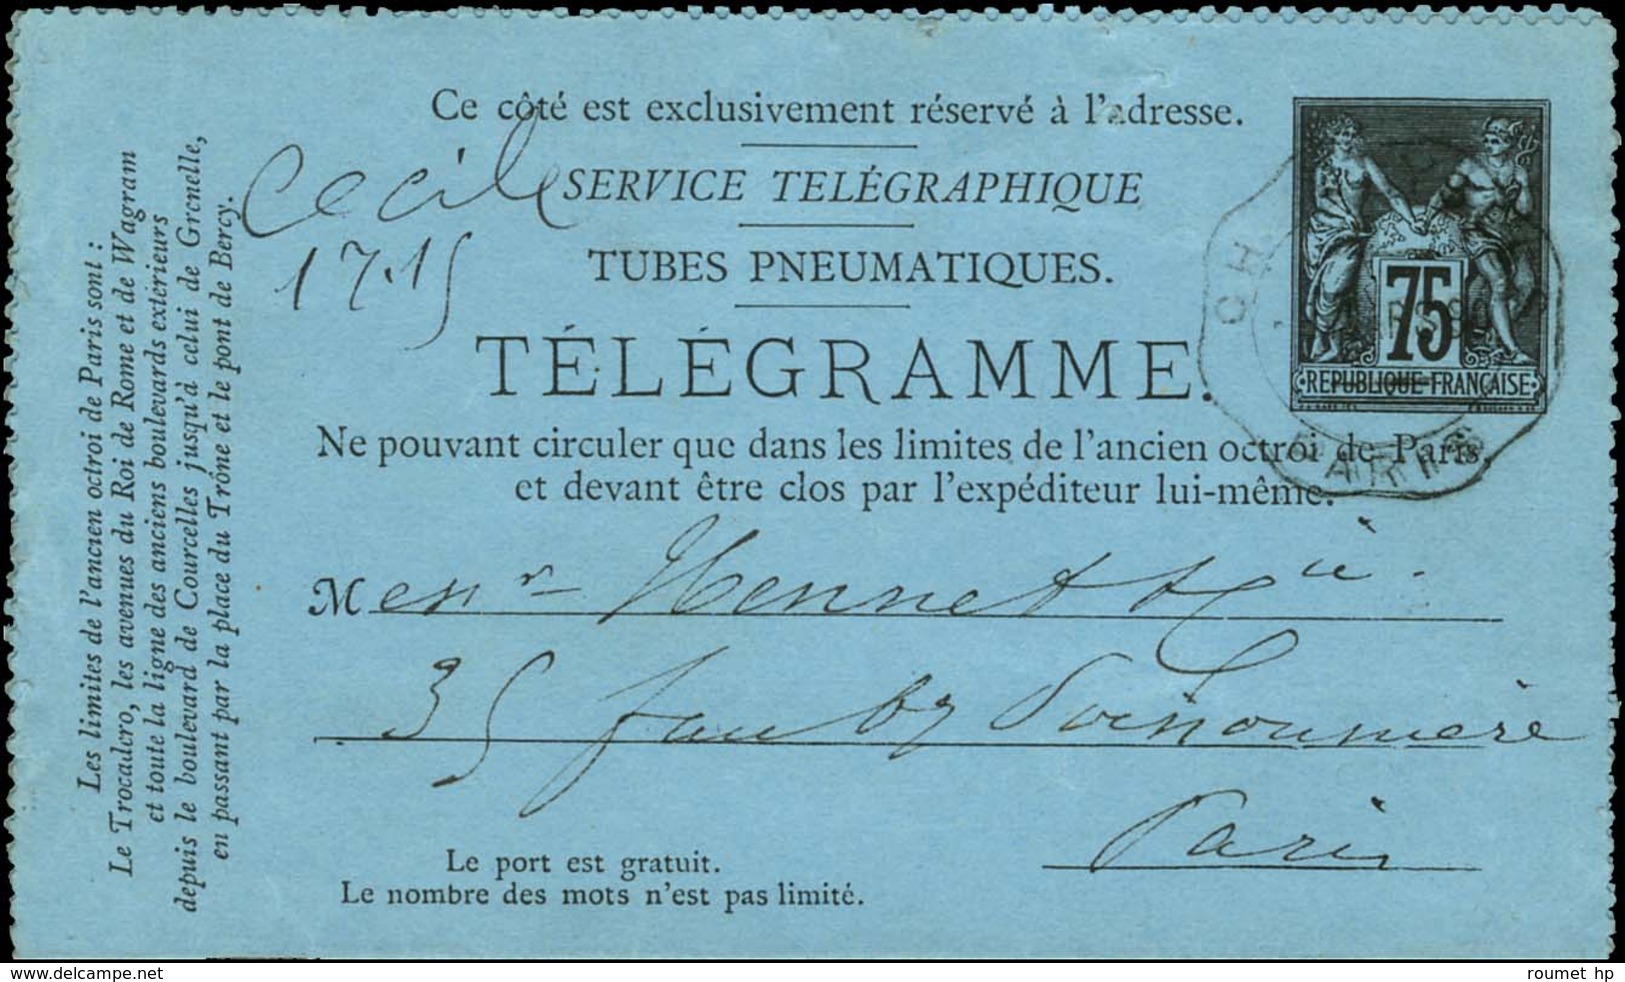 Ce côté est exclusivement réservé à l'adresse.
SERVICE TELÉGRAPHIQUE
TUBES PNEUMATIQUES.
TÉLÉGRAMME.
Ne pouvant circuler que dans les limites de l'ancien octroi de Paris,
et devant être clos par l'expéditeur lui-même.
Cecile
17.15
75
REPUBLIQUE FRANÇAISE
CH
Les limites de l'ancien octroi de Paris sont :
Le Trocadero, les avenues du Roi de Rome et de Wagram
et toute la ligne des anciens boulevards exterieurs
depuis le boulevard de Courcelles jusqu'à celui de Grenelle,
en passant par la place du Trône et le pont de Bercy.
Hennet
35 faubg Poissonnière
Paris
Le port est gratuit.
Le nombre des mots n'est pas limité.
www.delcampe.net
roumet hp